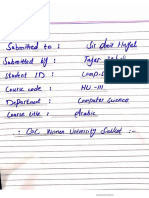 Submitted to :
Submitted by :
Student ID : Comp-S
Course code : HU - III
Department : Computer science
Course title : Arabic
:- GC Women University Sialkot :-